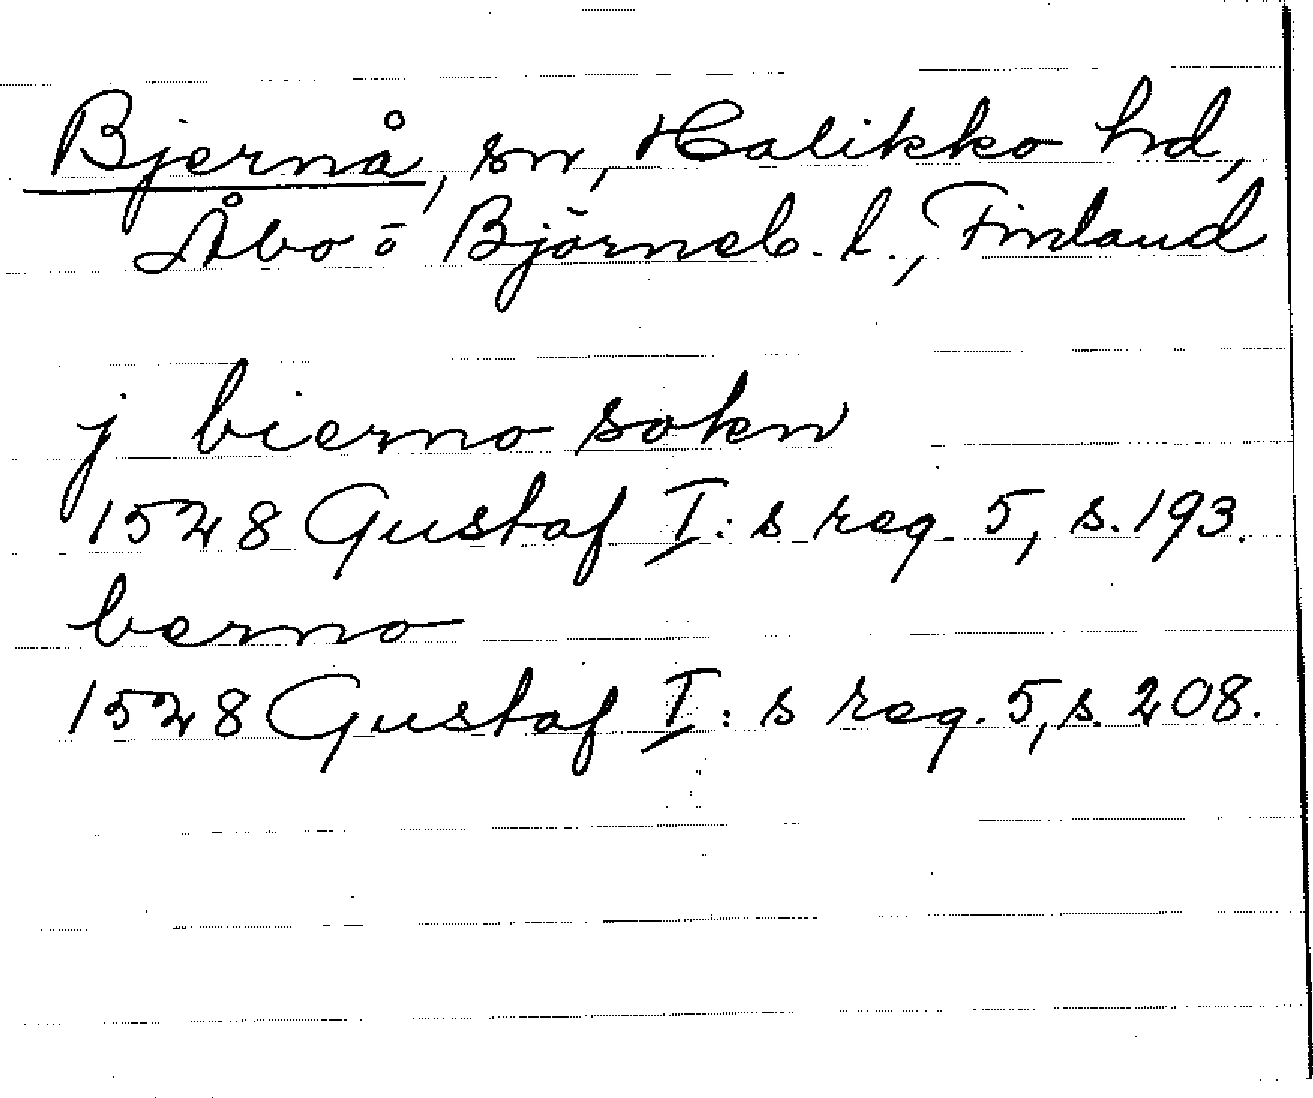 Bjernå, sn, Halikko hd,
Åbo o Björneb. l., Finland
j bierno sokn
1528 Gustaf I:s reg. 5, s. 193.
berno
1528 Gustaf I:s reg. 5, s. 208.